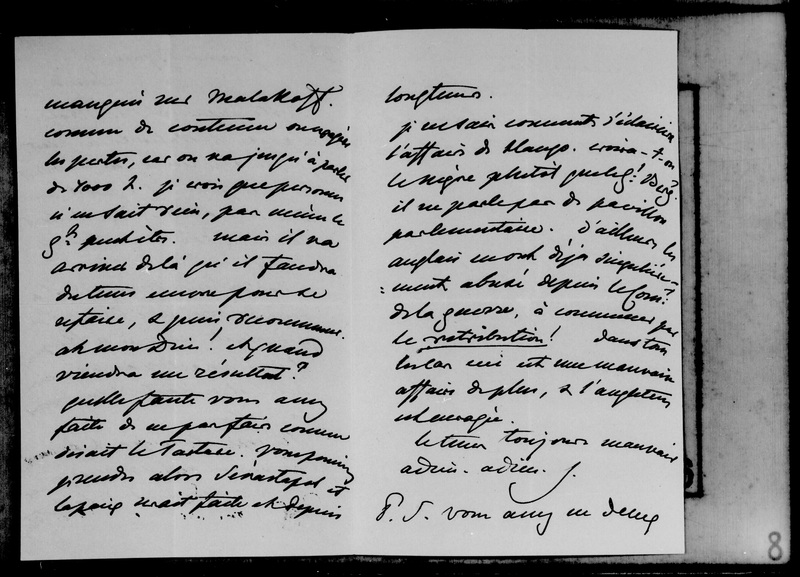 manqués sur Malakoff.
comme de coutume on exagère
les pertes, car on va jusqu'à parler
de 4000 h. je crois que personne
n'en sait rien, pas même le
gal peut-être. mais il va
arriver de là qu'il faudra
du tems encore pour se
refaire, & puis, recommencer.
ah mon Dieu! et quand
viendra un résultat?
quelle faute vous avez
faite de ne pas faire comme
disait le Tartare. vous pouviez
prendre alors Sévastopol et
la paix serait faite et depuis
longtems.
je ne sais comment s'éclaircira
l'affaire de Hango. croira-t-on
le nègre plutôt que le gl. Berg?
il ne parle pas de pavillon
parlementaire. d'ailleurs les
anglais m'ont déjà singulière-
=ment abusé depuis le Comt
de la guerre, à commencer par
le retribution! dans tous
les cas ceci est une mauvaise
affaire de plus, & l'angleterre
est enragée.
le tems toujours mauvais
adieu. adieu.
P. S. vous avez en deux